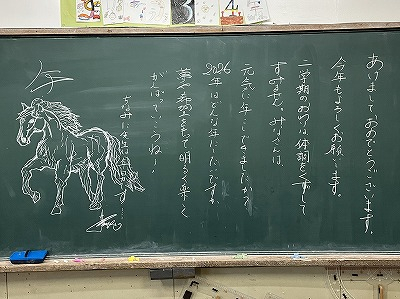 あけましておめでとうございます。
今年もよろしくお願いします。
二学期のおわりは体調をくずして
すみません。みなさんは
元気にすごしてきましたか？
2026年はどんな年にしたいですか。
夢や希望をもって明るく楽しく
がんばっていこうねー！
ちなみに先生は年女です
午
3
4